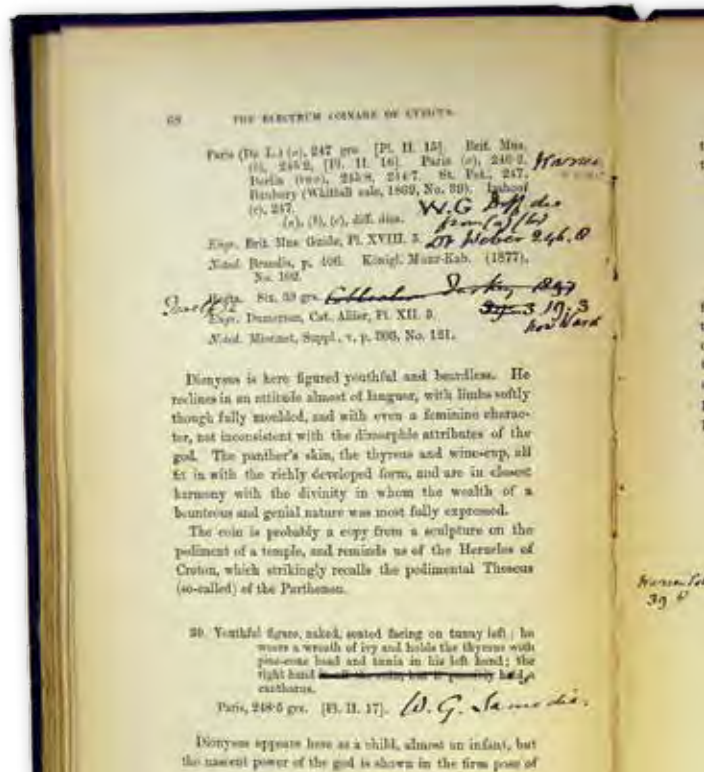 68 THE ELECTRUM COINAGE OF CYZICUS.
Paris (De L.) (a), 247 grs. [Pl. II. 15]. Brit. Mus.
(b), 245·2, [Pl. II. 16]. Paris (a), 246·2.
Berlin (two), 245·8, 244·7. St. Pet., 247.
Bunbury (Whittall sale, 1869, No. 39). Imhoof
(c), 247. W.G Diff die
(a), (b), (c), diff. dies. from (a) (b)
Engr. Brit. Mus. Guide, Pl. XVIII. 5. Dr Weber 246.8
Noted. Brandis, p. 406. Königl. Munz-Kab. (1877),
No. 102.
Hecta. Six, 39 grs.
19.3
now Ward
Engr. Dumersan, Cat. Allier, Pl. XII. 5.
Noted. Mionnet, Suppl., v. p. 303, No. 121.
Dionysus is here figured youthful and beardless. He
reclines in an attitude almost of languor, with limbs softly
though fully moulded, and with even a feminine charac-
ter, not inconsistent with the dimorphic attributes of the
god. The panther's skin, the thyrsus and wine-cup, all
fit in with the richly developed form, and are in closest
harmony with the divinity in whom the wealth of a
bounteous and genial nature was most fully expressed.
The coin is probably a copy from a sculpture on the
pediment of a temple, and reminds us of the Heracles of
Croton, which strikingly recalls the pedimental Theseus
(so-called) of the Parthenon.
39. Youthful figure, naked, seated facing on tunny left; he
wears a wreath of ivy and holds the thyrsus with
pine-cone head and tænia in his left hand; the
right hand is off the coin, but it possibly held a
cantharus.
Paris, 248·5 grs. [Pl. II. 17]. W. G. Same die.
Dionysus appears here as a child, almost an infant, but
the nascent power of the god is shown in the firm pose of